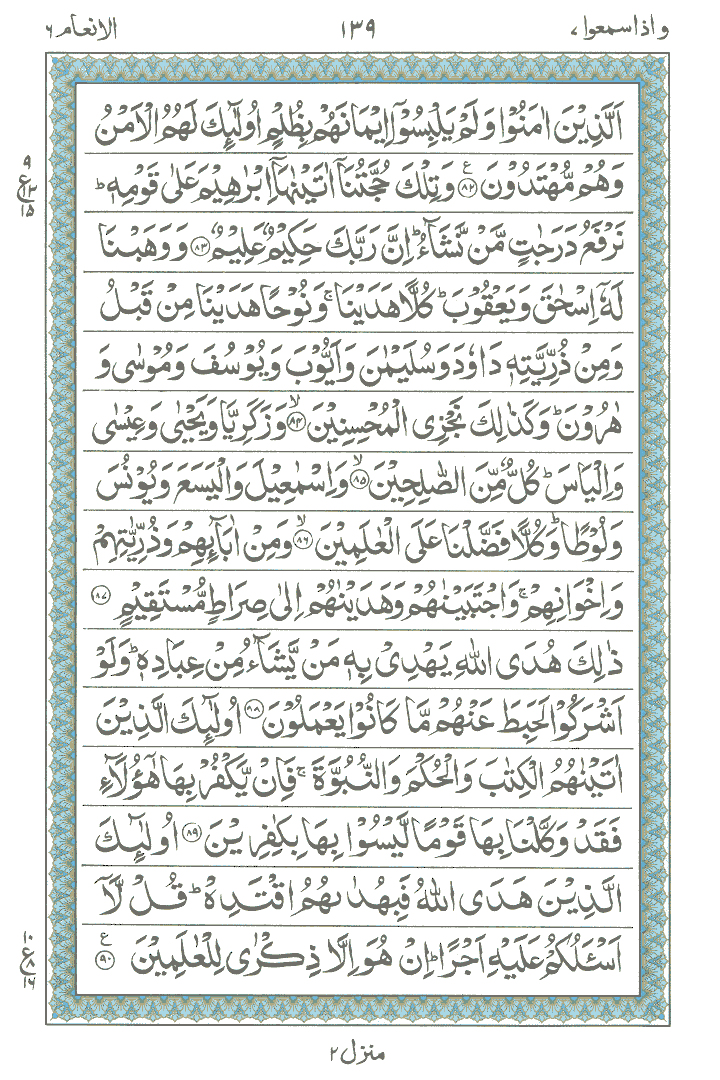 واذاسمعوا ٧
١٣٩
الانعام ٦
اَلَّذِیْنَ اٰمَنُوْا وَلَمْ یَلْبِسُوْۤا اِیْمَانَهُمْ بِظُلْمٍ اُولٰٓىِٕكَ لَهُمُ الْاَمْنُ
وَهُمْ مُّهْتَدُوْنَ ۧ﴿٨٢﴾ وَتِلْكَ حُجَّتُنَاۤ اٰتَیْنٰهَاۤ اِبْرٰهِیْمَ عَلٰی قَوْمِهٖ ؕ
نَرْفَعُ دَرَجٰتٍ مَّنْ نَّشَآءُ ؕ اِنَّ رَبَّكَ حَكِیْمٌ عَلِیْمٌ ﴿٨٣﴾ وَوَهَبْنَا
لَهٗۤ اِسْحٰقَ وَیَعْقُوْبَ ؕ كُلًّا هَدَیْنَا ۚ وَنُوْحًا هَدَیْنَا مِنْ قَبْلُ
وَمِنْ ذُرِّیَّتِهٖ دَاوٗدَ وَسُلَیْمٰنَ وَاَیُّوْبَ وَیُوْسُفَ وَمُوْسٰی وَ
هٰرُوْنَ ؕ وَكَذٰلِكَ نَجْزِی الْمُحْسِنِیْنَ ۙ﴿٨٤﴾ وَزَكَرِیَّا وَیَحْیٰی وَعِیْسٰی
وَاِلْیَاسَ ؕ كُلٌّ مِّنَ الصّٰلِحِیْنَ ۙ﴿٨٥﴾ وَاِسْمٰعِیْلَ وَالْیَسَعَ وَیُوْنُسَ
وَلُوْطًا ؕ وَكُلًّا فَضَّلْنَا عَلَی الْعٰلَمِیْنَ ۙ﴿٨٦﴾ وَمِنْ اٰبَآىِٕهِمْ وَذُرِّیّٰتِهِمْ
وَاِخْوَانِهِمْ ۚ وَاجْتَبَیْنٰهُمْ وَهَدَیْنٰهُمْ اِلٰی صِرَاطٍ مُّسْتَقِیْمٍ ﴿٨٧﴾
ذٰلِكَ هُدَی اللّٰهِ یَهْدِیْ بِهٖ مَنْ یَّشَآءُ مِنْ عِبَادِهٖ ؕ وَلَوْ
اَشْرَكُوْا لَحَبِطَ عَنْهُمْ مَّا كَانُوْا یَعْمَلُوْنَ ﴿٨٨﴾ اُولٰٓىِٕكَ الَّذِیْنَ
اٰتَیْنٰهُمُ الْكِتٰبَ وَالْحُكْمَ وَالنُّبُوَّةَ ۚ فَاِنْ یَّكْفُرْ بِهَا هٰۤؤُلَآءِ
فَقَدْ وَكَّلْنَا بِهَا قَوْمًا لَّیْسُوْا بِهَا بِكٰفِرِیْنَ ﴿٨٩﴾ اُولٰٓىِٕكَ
الَّذِیْنَ هَدَی اللّٰهُ فَبِهُدٰىهُمُ اقْتَدِهْ ؕ قُلْ لَّاۤ
اَسْـَٔلُكُمْ عَلَیْهِ اَجْرًا ؕ اِنْ هُوَ اِلَّا ذِكْرٰی لِلْعٰلَمِیْنَ ۧ﴿٩٠﴾
٩
ع ١٣
١٥
١٠
ع ٨
١٦
منزل ٢